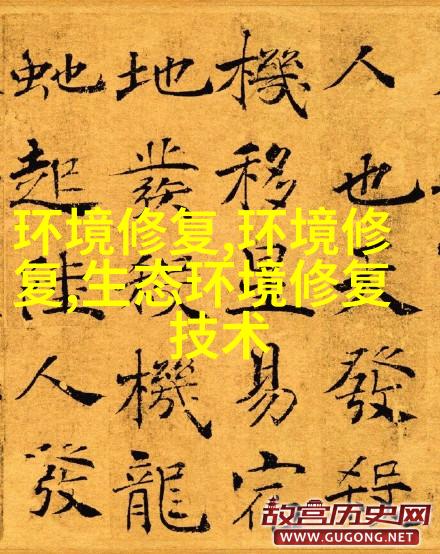 人也天發殺
機移星易宿
地發殺機龍
虵起陸人發
环境修复,环境修
复,生态环境修复
技术
故宫历史网
WWW.GUGONG.NET